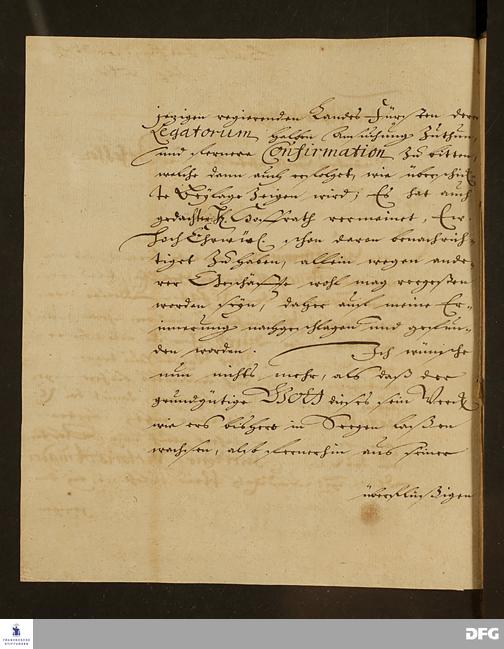 jezigen regierenden Landes Fürsten derer
Legatorum halben Ansuchung zuthun,
und fernere Confirmation zu bitten,
welche dann auch erfolget, wie überschick-
te Beylage zeigen wird; Es hat auch
gedachter H. Hoffrath vermeinet, Ew.
HochEhrwürd. schon davon benachrich-
tiget zu haben, allein wegen ande-
rer Geschäffte wohl mag vergeßen
worden seyn, daher auf meine Er-
innerung nachgeschlagen und gefun-
den worden. Ich wünsche
nun nichts mehr, als daß der
grundgütige Gott dieses sein Werck
wie ers bishero in Seegen laßen
wachsen, also fernerhin aus seiner
überflüßigen
FRANCKESCHE STIFTUNGEN
DFG